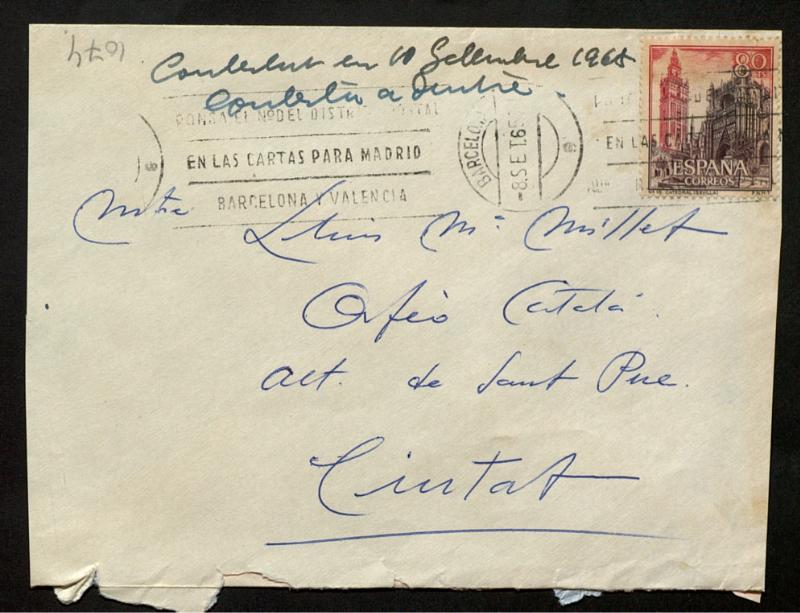 1074
en 10 Setembre 1965
PONGA EL Nº DEL DISTRITO POSTAL
EN LAS CARTAS PARA MADRID
BARCELONA Y VALENCIA
BARCELONA
-8.SET.65
80
ESPAÑA
CORREOS
EN LAS
Mtre Lluis Mª Millet
Orfeó Català.
Alt. de Sant Pere.
Ciutat